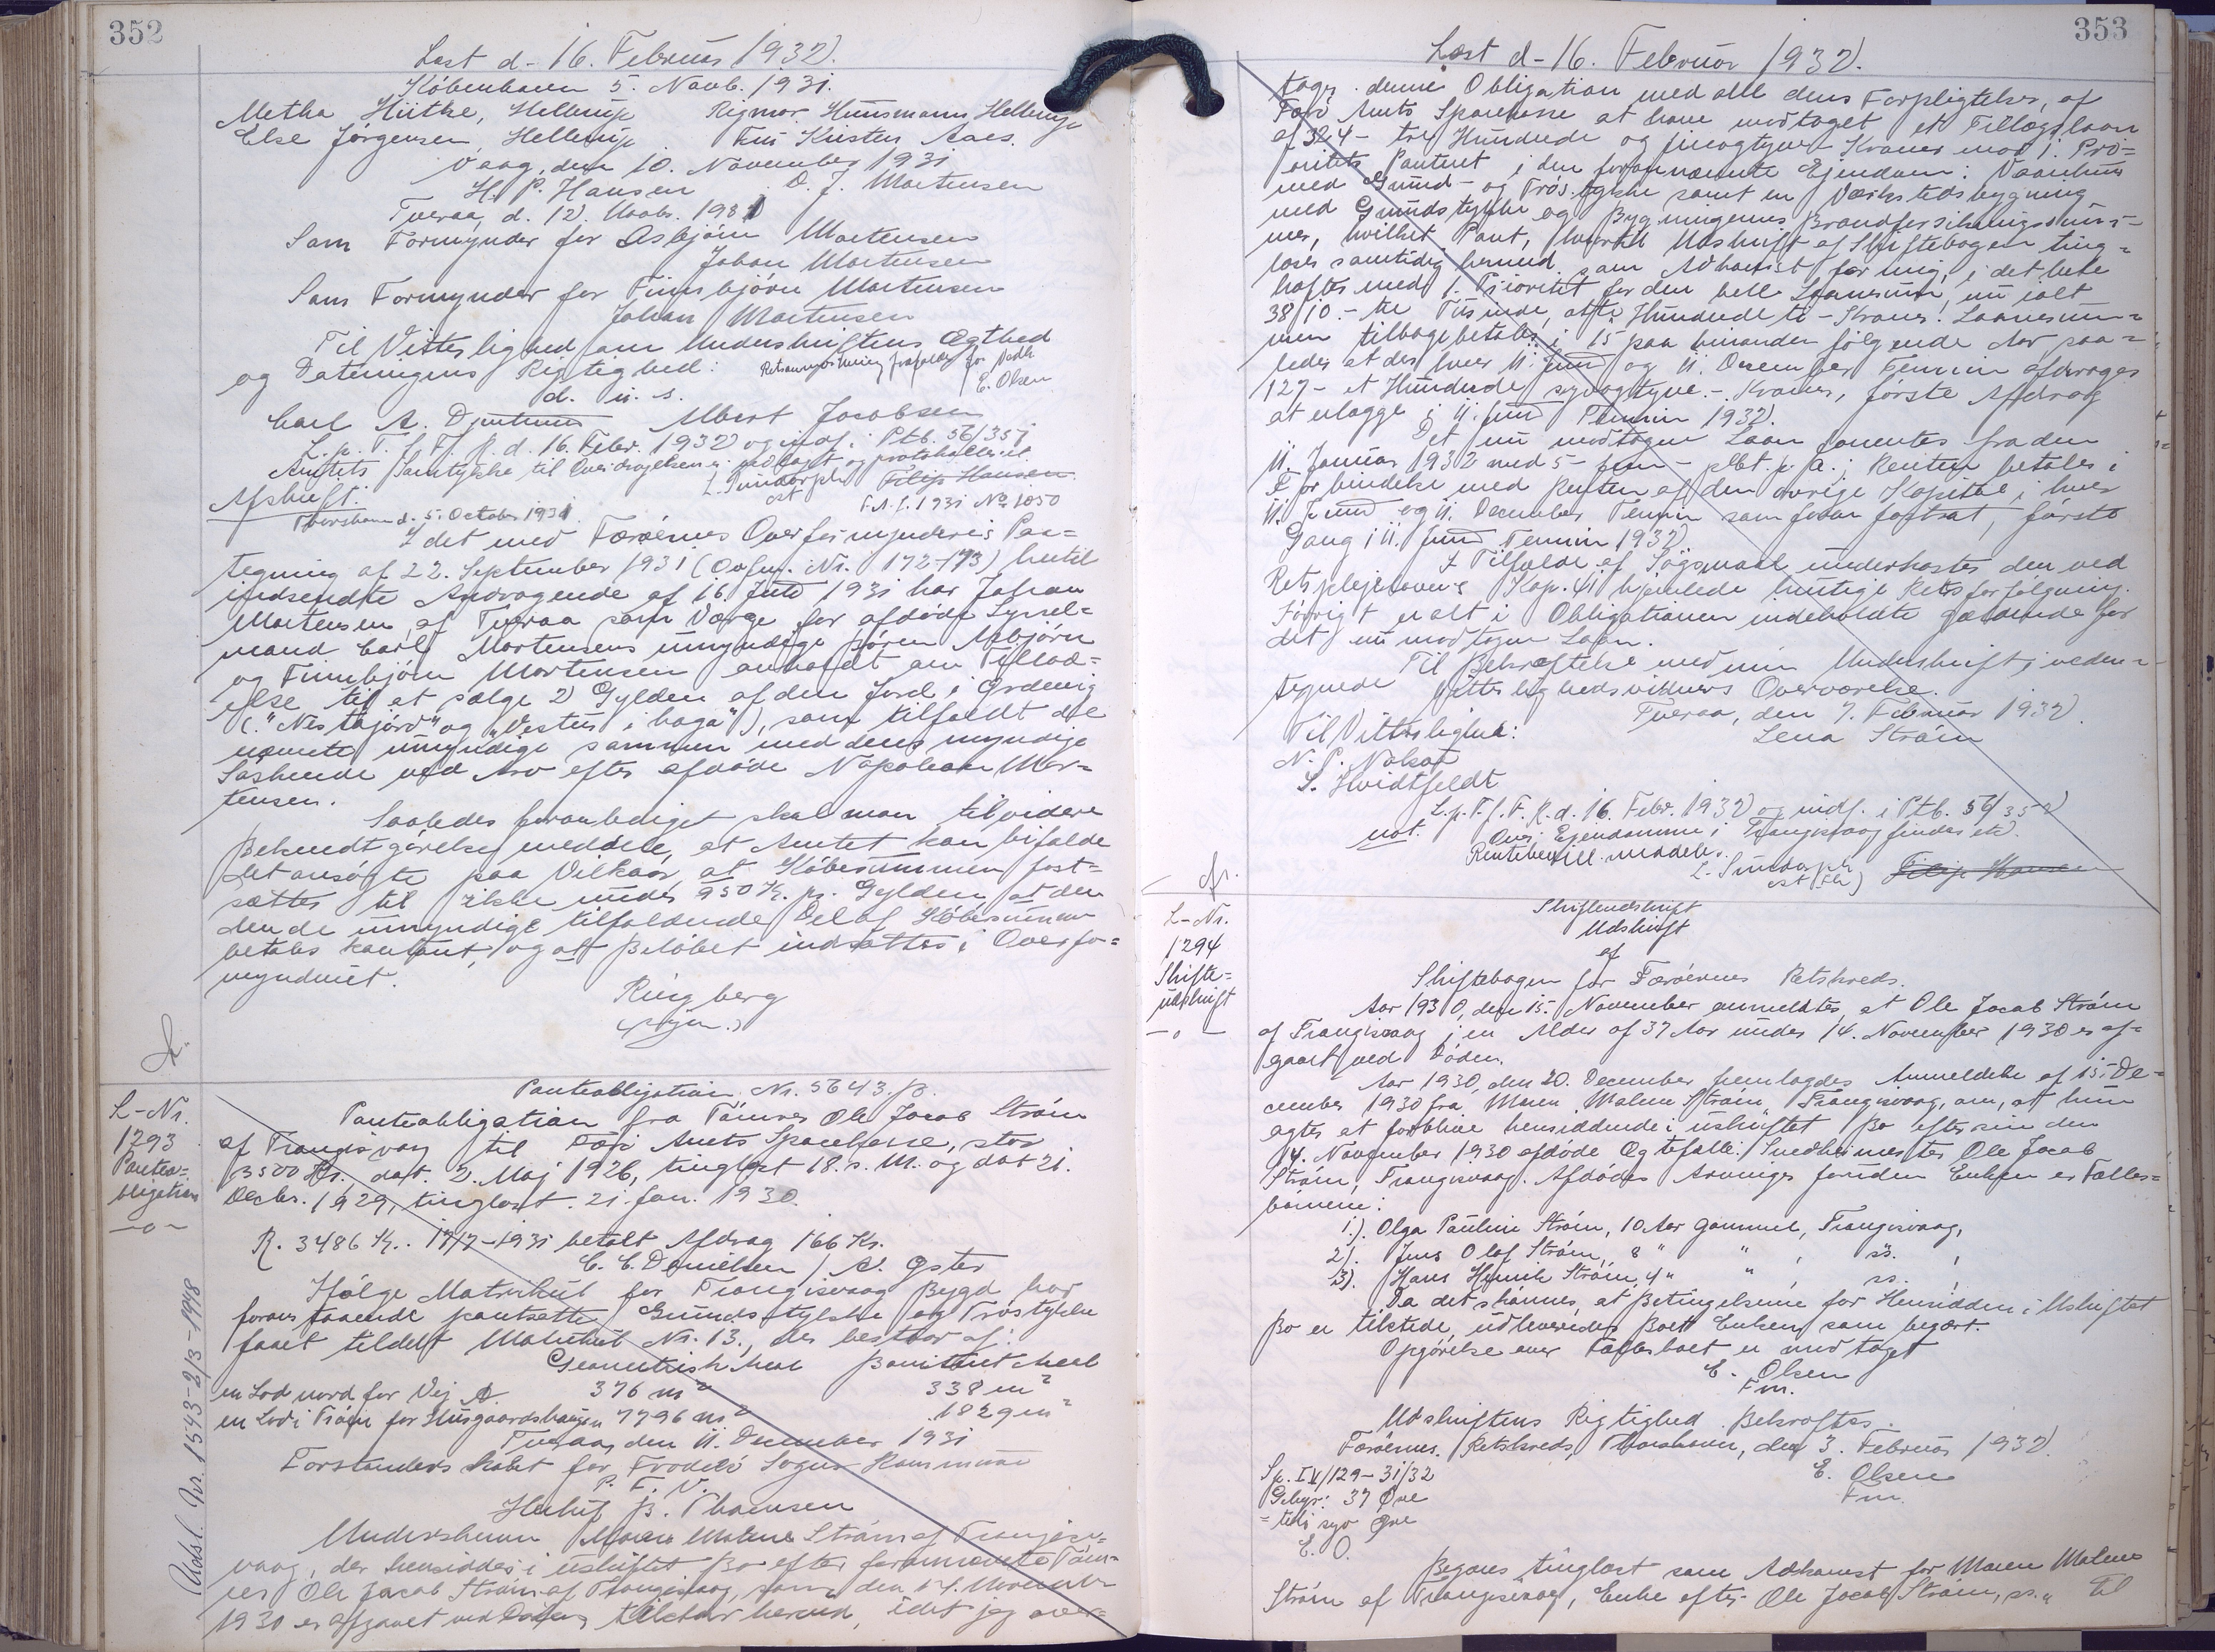 352
Læst d- 16. Februar 1932.
København 5. Novb. 1931.
Metha Hütke, Hellerup Rigmor Hunsmann, Hellerup
Else Jørgensen, Hellerup Kristen Aaes.
Vaag, den 10. November 1931
H. P. Hansen D. J. Mortensen
Tveraa, d. 12. Novb. 1931
Som Formynder for Asbjørn Mortensen
Johan Mortensen
Som Formynder for Finnbjørn Mortensen
Johan Mortensen
Til Vitterlighed om Underskriftens Ægthed
og Dateringens Rigtighed:
E. Olsen
d. u. s.
Carl A. Albert Jacobsen
L. p. T. f. F. R. d. 16. Febr. 1932 og indf. i Ptb. 56/351
Amtets Samtykke til Overdragelsen er vedlagt og protokolleret.
L. Sundorph Filip Hansen
cst F.A.J. 1931 No 1050
Afskrift.
Thorshavn d. 5. October 1931.
I det med Færøernes Overformynderis Paa=
tegning af 22. September 1931 (Ovfm. Nr. 172-173) hertil
indsendte Andragende af 16. Juni 1931 har Johan
Mortensen af Tveraa som Værge for afdøde Syssel=
mand Carl Mortensens umyndige Børn Asbjørn
og Finnbjørn Mortensen anholdt om Tillad=
else til at sælge 2 Gylden af den Jord i Ørdevig
("Nestajörd" og "Vestur i haga"), som tilfaldt de
nævnte umyndige sammen med deres myndige
Søskende ved Arv efter afdøde Napoleon Mor=
tensen.
Saaledes foranlediget skal man til videre
Bekendtgørelse meddele, at Amtet kan bifalde
det ansøgte paa Vilkaar, at Købesummen fast=
sættes til ikke under 950 Kr. pr. Gylden, at den
den de umyndige tilfaldende Del af Købesummen
betales kontant, og at Beløbet indsættes i Overfor=
mynderiet.
Ringberg
L-Nr.
1293
Panteo=
bligation
—o—
Panteobligation Nr. 5643 B.
Panteobligation fra Tømrer Ole Jacob Strøm
af Trangisvaag til Færø Amts Sparekasse, stor
3500 Kr. dat. 2. Maj 1926, tinglæst 18. s. M. og dat 21.
Decbr. 1929, tinglæst. 21. Jan. 1930.
R. 3486 Kr. 17/7-1931 betalt Afdrag 166 Kr.
C. C. Danielsen / A. Øster
Ifølge Matrikul for Trangisvaag Bygd har
foranstaaende pantsatte Grundstykke og Trøstykke
faaet tildelt Matrikul Nr. 13, der bestaar af:
Geometrisk Areal Boniteret Areal
en Lod nord for Vej A. 376 m² 338 m²
en Lod i Trøen for Husgaardshaugen 7796 m² 1829 m²
Tveraa, den 11. December 1931
Forstanderskabet for Frodebø Sogns Kommune
P. F. V.
B. Thomsen
Underskrevne Maren Malene Strøm af Trangis=
vaag, der hensidder i uskiftet Bo efter forannævnte Tøm=
rer Ole Jacob Strøm af Trangisvaag, som den 14. November
1930 er afgaaet ved Døden, tilstaar herved, idet jeg over=
Udsl. Nr. 1543-2/3-1948
353
Læst d- 16. Februar 1932.
tager denne Obligation med alle dens Forpligtelser, af
Færø Amts Sparekasse at have modtaget et Tillægslaan
af 324- tre Hundrede og fireogtyve Kroner mod 1. Pri=
oritets Panteret i den forannævnte Ejendom: Vaanhus
med Grund- og Trøstykke samt en Værkstedsbygning
med Grundstykke og Bygningernes Brandforsikringssum=
mer, hvilket Pant, hvortil Udskrift af Skiftebogen ting=
læses samtidig hermed som Adkomst for mig, i det hele
hæftes med 1. Prioritet for den hele Lånesum, nu ialt
3810.- tre Tusinde, otte Hundrede ti - Kroner. Laanesum=
men tilbagebetales i 15 paa hinanden følgende Aar saa=
ledes at der hver 11. Juni og 11. December Termin afdrages
127- et Hundrede syvogtyve. - Kroner, første Afdrag
at erlægge i 11. Juni Termin 1932.
Det nu modtagne Laan forrentes fra den
11. Januar 1932 med 5- fem- pCt. p. a.; Renten betales i
Forbindelse med Renten af den øvrige Kapital i hver
11. Juni og 11. December Termin som foran fastsat, første
Gang i 11. Juni Termin 1932.
I Tilfælde af Søgsmaal underkastes den ved
Retsplejelovens Kap. 41 hjemlede hurtige Retsforfølgning.
Iøvrigt er alt i Obligationen indeholdte gældende for
det nu modtagne Laan.
Til Bekræftelse med min Underskrift i neden=
tegnede Vitterlighedsvidners Overværelse.
Tveraa, den 7. Februar 1932.
Til Vitterlighed: Lena Strøm
N. P. Nolsøe
S. Hvidtfeldt
L. p. T. f. F. R. d. 16. Febr. 1932 og indf. i Ptb. 56/352
not. Over Ejendomme i Trangisvaag findes etc.
Rentebevill. meddelt.
L. Sundorph Filip Hansen
cst
L-Nr.
1294
Skifte=
udskrift
—o—
Skifteudskrift
Udskrift
af
Skiftebogen for Færøernes Retskreds.
Aar 1930, den 15. November anmeldtes, at Ole Jacob Strøm
af Trangisvaag i en Alder af 37 Aar under 14. November 1930 er af=
gaaet ved Døden.
Aar 1930, den 20. December fremlagdes Anmeldelse af 15. De=
cember 1930 fra Maren Malene Strøm, Trangisvaag, om, at hun
agter at forblive hensiddende i uskiftet Bo efter sin den
14. November 1930 afdøde Ægtefælle: Smedhermester Ole Jacob
Strøm, Trangisvaag. Afdødes Arvinger foruden Enken er Fælles=
børnene:
1). Olga Pauline Strøm, 10 Aar gammel, Trangisvaag,
2). Jens Olaf Strøm, 8 " " , ss. ,
3). Hans Henrik Strøm, 4 " " , ss. ,
Da det skønnes, at Betingelserne for Hensidden i Uskiftet
Bo er tilstede, udleveredes Boet Enken som begært.
Opgørelse over Fællesboet er modtaget
E. Olsen
Fm.
Udskriftens Rigtighed Bekræftes.
Færøernes Retskreds, Thorshavn, den 3. Februar 1932.
E. Olsen
Fm.
Sp. IV/129-31/32
Gebyr: 37 Øre
E. O.
Begæres tinglæst som Adkomst for Maren Malene
Strøm af Trangisvaag, Enke efter Ole Jacob Strøm, ss. " Til